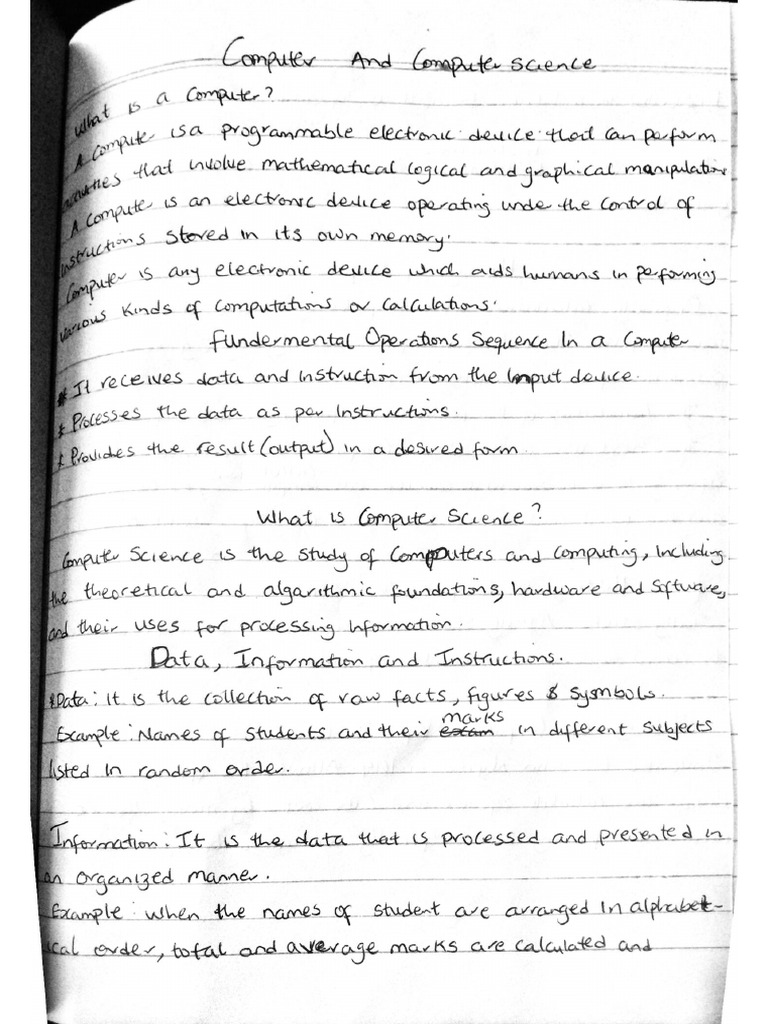 Computer And Computer science
What is a Computer?
A Compute is a programmable electronic device that can perform
that involve mathematical logical and graphical manipulations
A Compute is an electronic device operating under the control of
instructions stored in its own memory.
Computer is any electronic device which aids humans in performing
various kinds of computations or calculations.
Fundermental Operations Sequence In a Computer
* It receives data and instruction from the Input device.
* Processes the data as per Instructions.
* Provides the result (output) in a desired form
What is Computer Science?
Computer Science is the study of Computers and computing, Including
the theoretical and algarithmic foundations, hardware and Sftware,
and their uses for processing Information.
Data, Information and Instructions.
* Data: It is the collection of raw facts, figures & Sysmbols.
marks
Example: Names of Students and their exam in different subjects
listed in random order.
Information: It is the data that is processed and presented in
an organized manner.
Example: when the names of student are arranged in alphabet-
ical order, total and average marks are calculated and